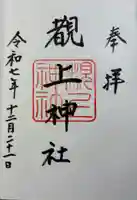 奉拝
觀上神社
令和七年十二月二十一日